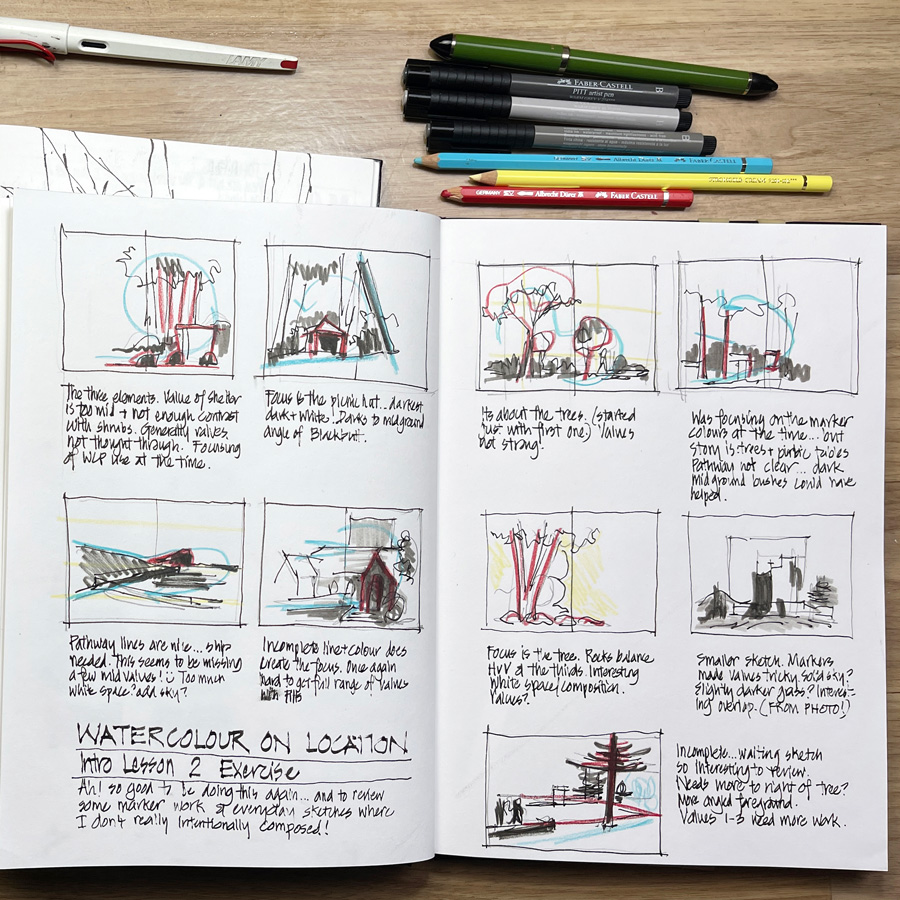 LAMY
FABER CASTELL
PITT artist pen
B
B
Albrecht Dürer
GERMANY
Albrecht Dürer
FABER CASTELL
The three elements. Value of shelter
is too mid + not enough contrast
with shrubs. Generally values
not thought through. Focusing
of WCP use at the time.
Focus is the picnic hut... darkest
dark + white! Darks to midground
angle of
Pathway lines are nice... ship
needed. This seems to be missing
a few mid values! Too much
white space? add sky?
Incomplete line + colour does
create the focus. Once again
hard to get full range of values
with
WATERCOLOUR ON LOCATION
Intro Lesson 2 Exercise
Ah! so good to be doing this again... and to review
some marker work of everyday sketches where
I don't really intentionally composed!
Its about the trees. (started
just with first one.) Values
not strong!
Was focusing on the marker
colours at the time... but
story is trees + picnic tables
Pathway not clear... dark
midground bushes could have
helped.
Focus is the tree. Rocks balance
H+V @ the thirds. Interesting
White space/composition.
Values?
Smaller sketch. Markers
made values tricky. solid sky?
Slightly darker grass? Interest-
ing overlap. (FROM PHOTO!)
Incomplete... waiting sketch
so interesting to review.
Needs more to right of tree?
More angled foreground.
Values 1-3 need more work.